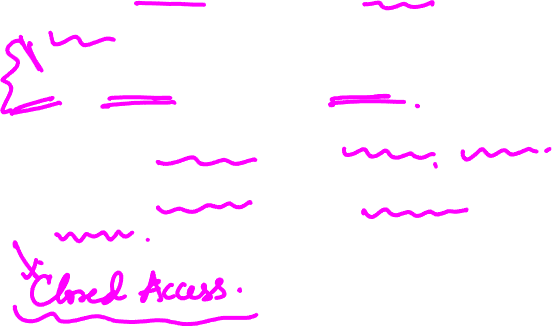 Closed Access.